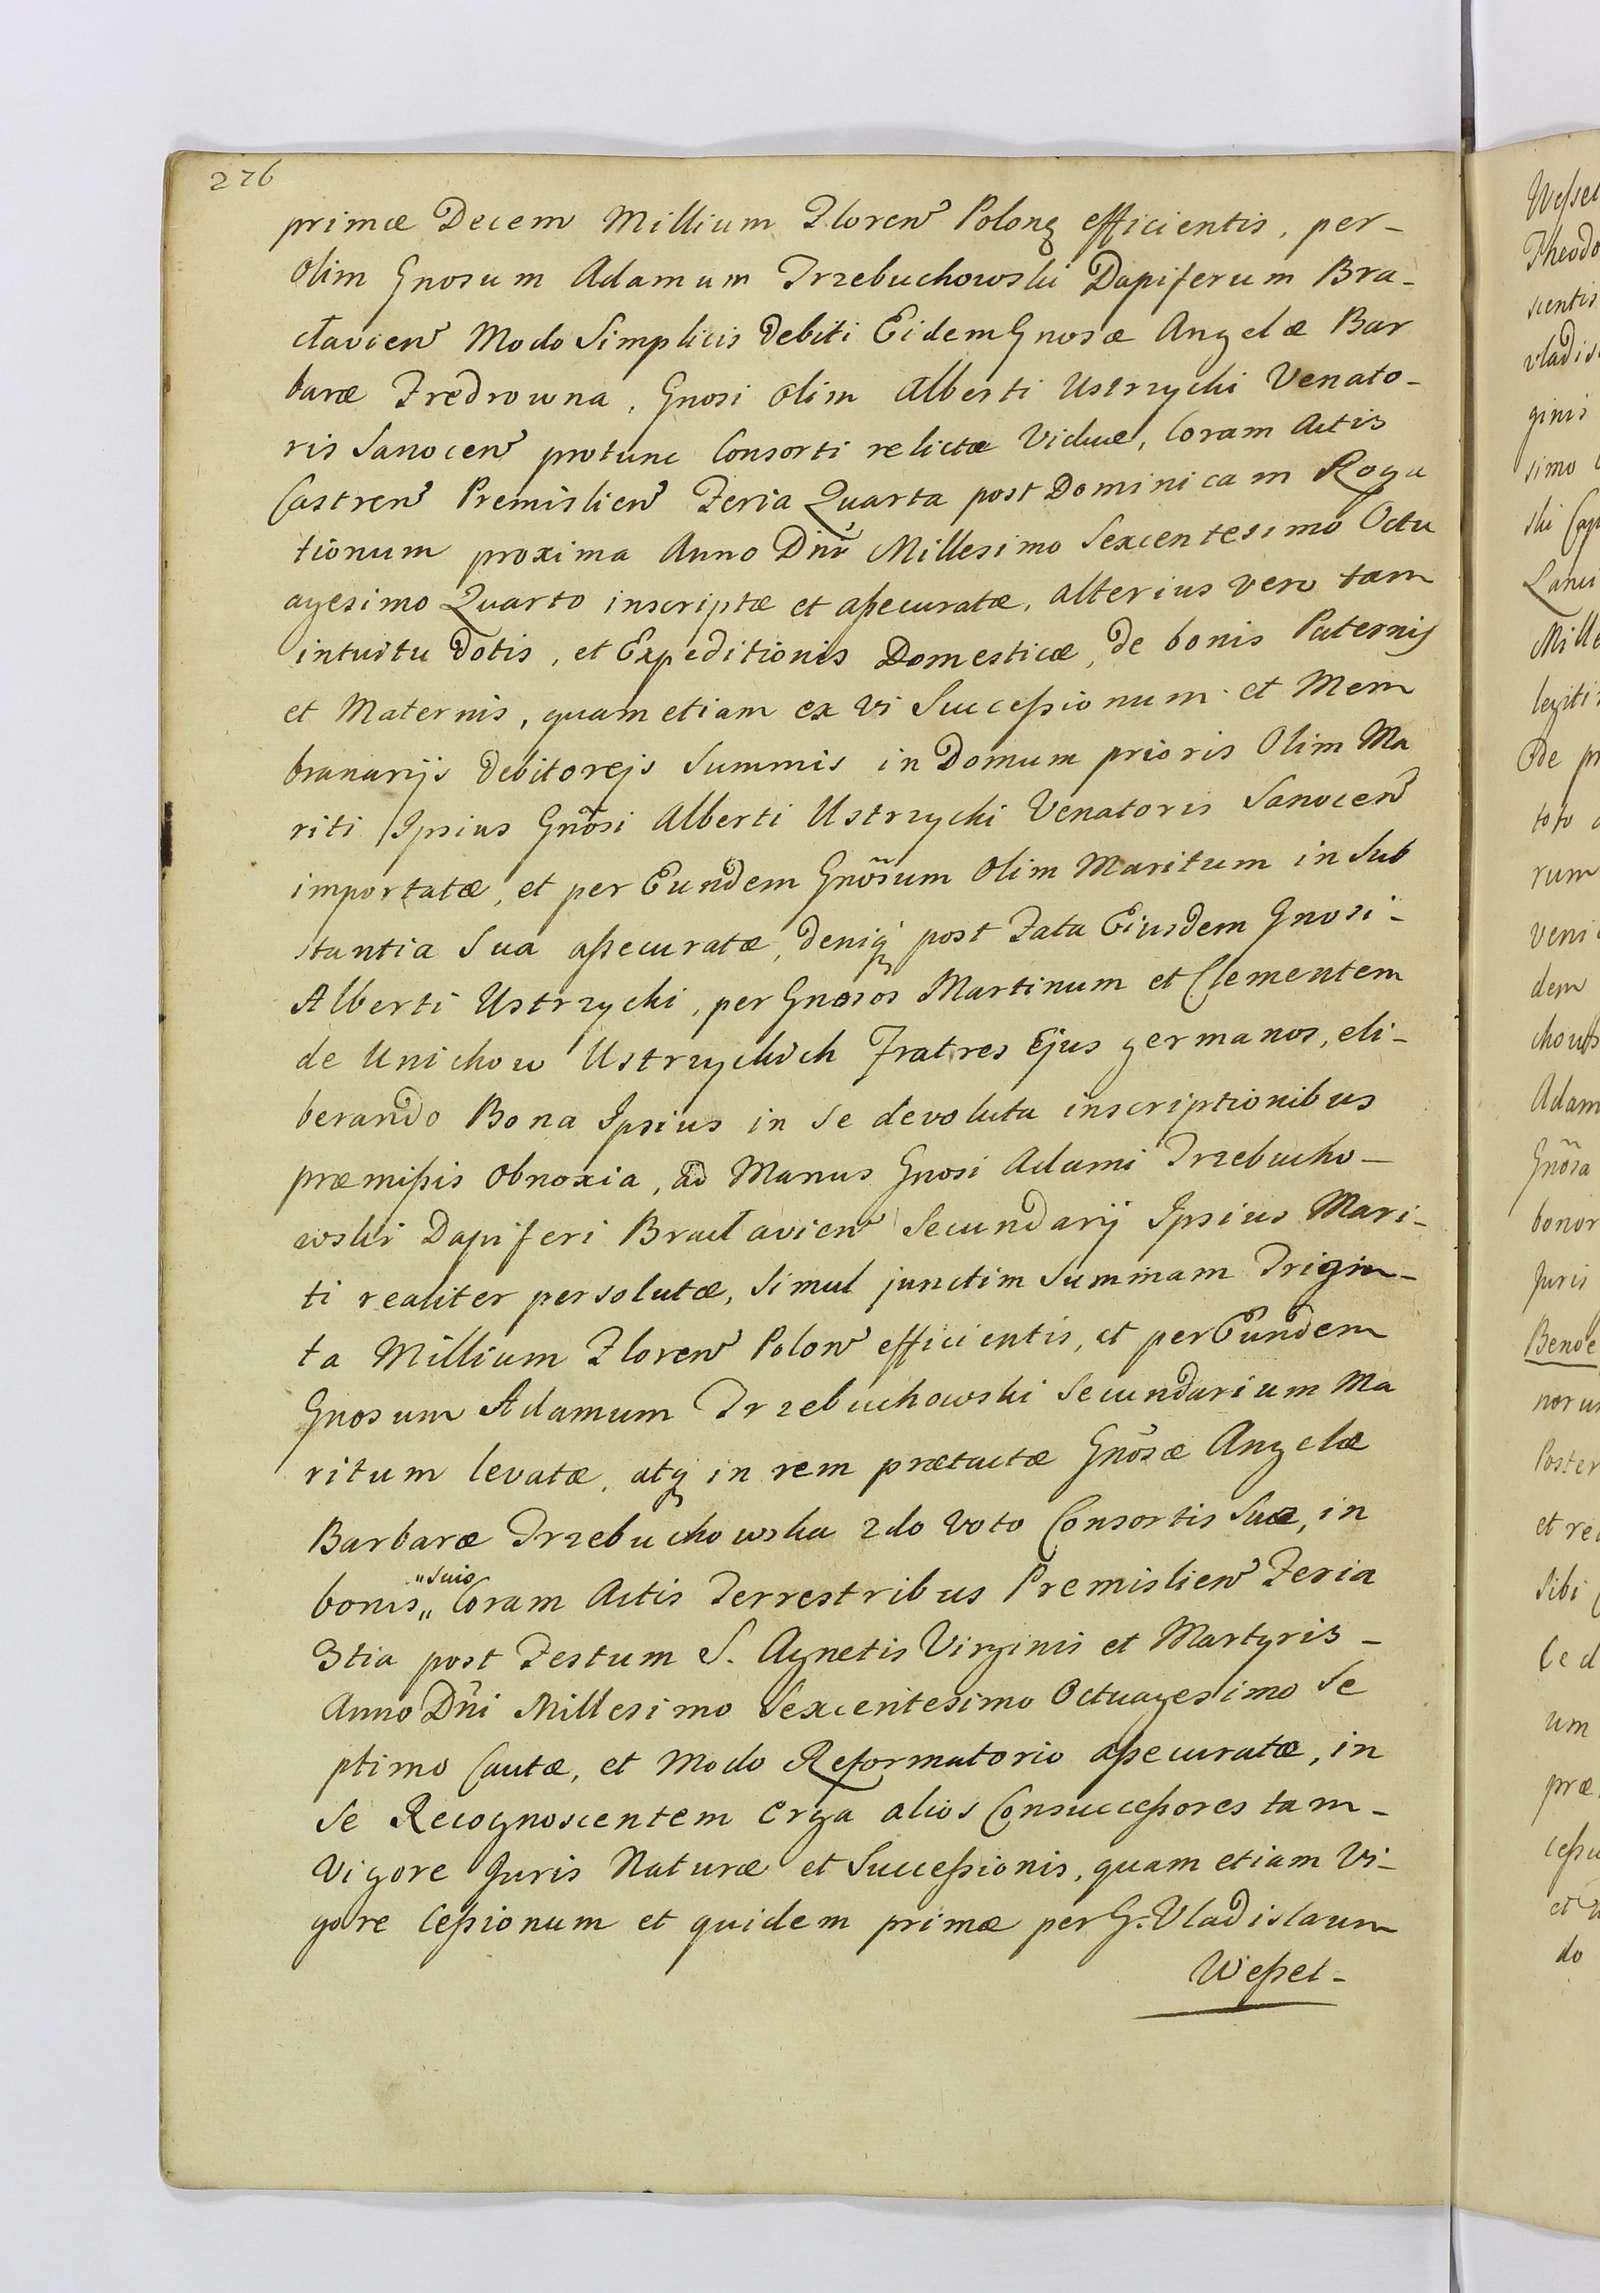 276
primæ Decem Millium Floren Polonę efficientis, per-
Olim Gnosum Adamum Trzebuchowski Dapiferum Bra-
ctavien Modo Simplicis Debiti Eidem Gnosæ Angelæ Bar
baræ Fredrowna, Gnosi olim Alberti Ustrzycki Venato-
ris Sanocen protunc Consorti relictæ Viduæ, Coram Actis
Castren Premislien Feria Quarta post Dominicam Roga
tionum proxima Anno Dñi Millesimo Sexcentesimo Octu
agesimo Quarto inscriptæ et aßecuratæ, alterius vero tam
intuitu Dotis, et Expeditionis Domesticæ, de bonis Paternis
et Maternis, quam etiam ex vi Succeßionum et Mem
branarijs debitorejs Summis in Domum prioris Olim Ma
riti Ipsius Gnõsi Alberti Ustrzycki Venatoris Sanocen
importatæ, et per Eundem Gnõsum Olim Maritum in Sub
stantia Sua aßecuratæ, deniq post Fata Eiusdem Gnosi-
Alberti Ustrzycki, per Gnosos Martinum et Clementem
de Unichow Ustrzyckich Fratres Ejus germanos, eli-
berando Bona Ipsius in se devoluta inscriptionibus
præmißis Obnoxia, ad Manus Gnosi Adami Trzebucho-
wski Dapiferi Bractavien Secundarij Ipsius Mari-
ti realiter persolutæ, Simul junctim Summam Trigin-
ta Millium Floren Polon efficientis, et per Eundem
Gnosum Adamum Trzebuchowski Secundarium Ma
ritum levatæ, atq in rem prætactæ Gnõsæ Angelæ
Barbaræ Trzebuchowska 2do Voto Consortis Suæ, in
bonis "suis" Coram Actis Terrestribus Premislien Feria
3tia post Festum S. Agnetis Virginis et Martyris-
Anno Dñi Millesimo Sexcentesimo Octuagesimo Se
ptimo Cautæ, et Modo Reformatorio aßecuratæ, in
Se Recognoscentem Erga alios Consucceßores tam-
Vigore Juris Naturæ et Succeßionis, quam etiam Vi-
gore Ceßionum et quidem primæ per G. Vladislaum
Weßel-